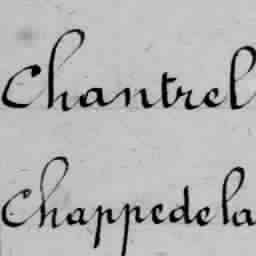 Chantrel
Chappedela